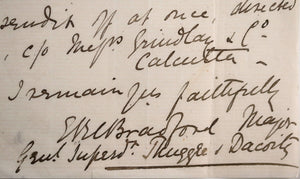 send it off at once, directed
c/o Messrs Grindlay & Co
Calcutta –
I remain yrs faithfully
ERC Bradford Major
Genl Superdt Thuggee & Dacoity